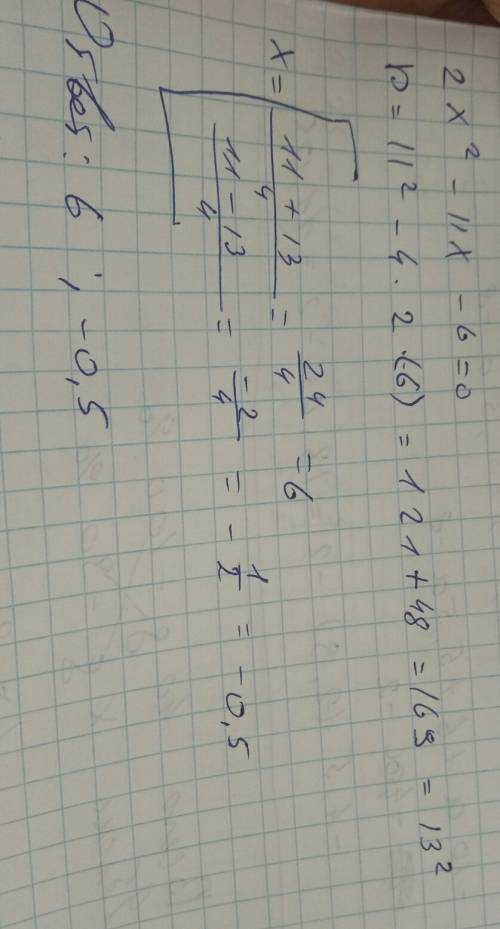 2x² - 11x - 6 = 0
D = 11² - 4 · 2 · (-6) = 121 + 48 = 169 = 13²
x = [ (11 + 13)/4 = 24/4 = 6
(11 - 13)/4 = -2/4 = - 1/2 = -0,5
Ответ: 6 ; -0,5